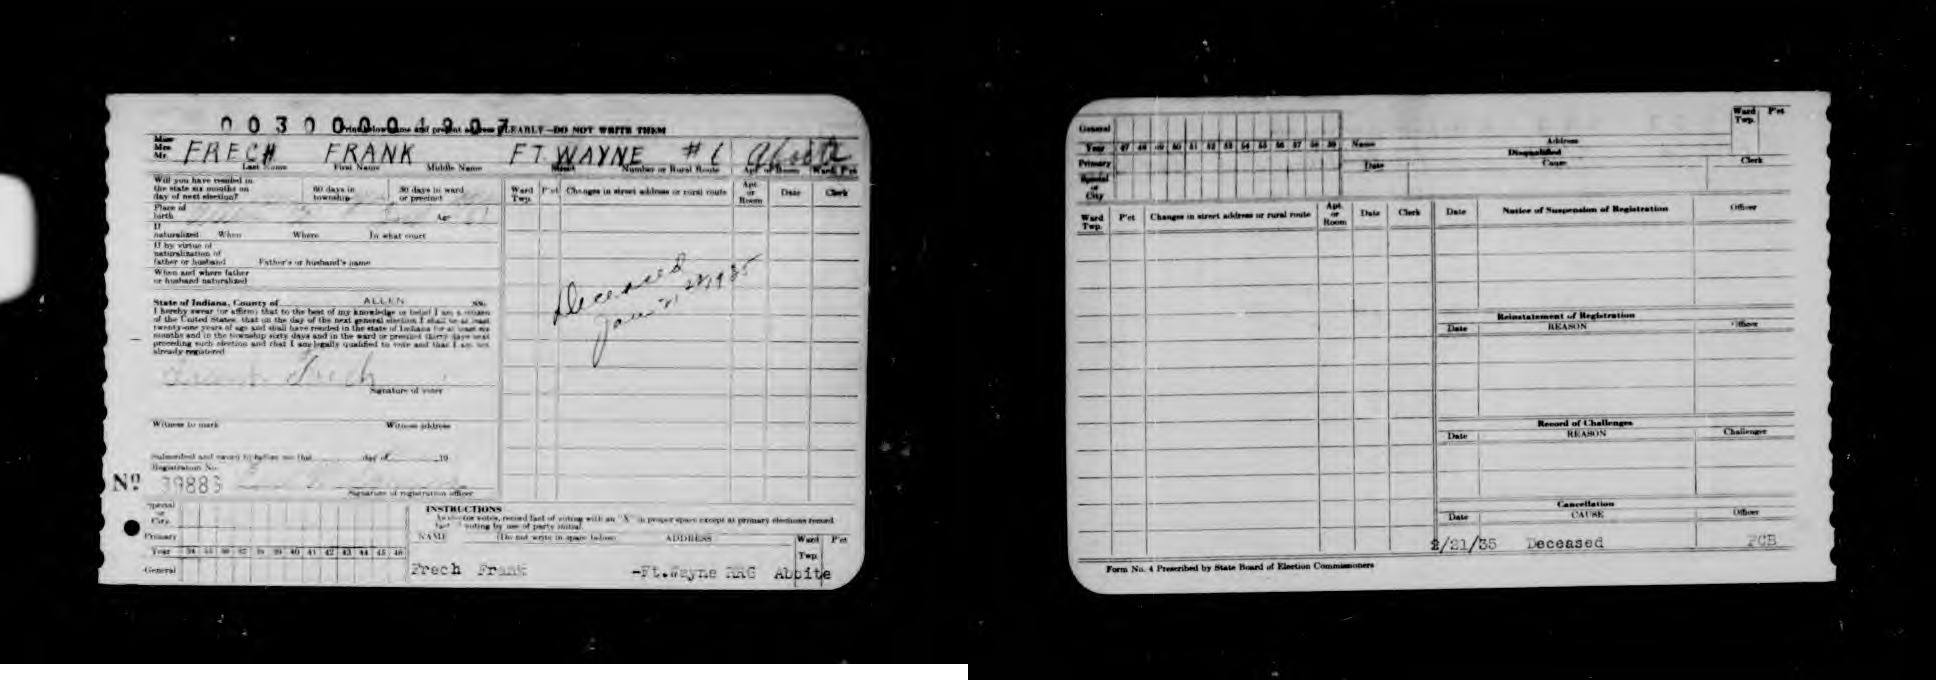 003000001207
Print below name and present address PLEARLY—DO NOT WRITE THEM
Miss
Mrs.
Mr. FRECH FRANK FT. WAYNE #6 Aboite
Last Name First Name Middle Name Street Number or Rural Route Apt. or Room Ward P'ct
Will you have resided in
the state six months on
day of next election?
60 days in
township
30 days in ward
or precinct
Ward
Twp. P'ct Changes in street address or rural route Apt.
or
Room Date Clerk
Place of
birth Age
If
naturalized When Where In what court
If by virtue of
naturalization of
father or husband Father's or husband's name
When and where father
or husband naturalized
Deceased
State of Indiana, County of ALLEN ss.
I hereby swear (or affirm) that to the best of my knowledge or belief I am a citizen
of the United States, that on the day of the next general election I shall be at least
twenty-one years of age and shall have resided in the state of Indiana for at least six
months and in the township sixty days and in the ward or precinct thirty days next
preceding such election and that I am legally qualified to vote and that I am not
already registered
Frank Frech
Signature of voter
Witness to mark Witness address
Subscribed and sworn to before me this day of 19
Registration No.
No 39883
Signature of registration officer
Special
or
City
Primary
Year 34 35 36 37 38 39 40 41 42 43 44 45 46
General
INSTRUCTIONS
voter votes, record fact of voting with an "X" in proper space except at primary elections record
fact of voting by use of party initial.
NAME (Do not write in space below) ADDRESS Ward
Twp. P'ct
Frech Frank -Ft.Wayne RR6 Aboite
General
Year 47 48 49 50 51 52 53 54 55 56 57 58 59
Primary
Special
or
City
Name Address
Ward
Twp. P'ct
Disqualified
Date Cause Clerk
Ward
Twp. P'ct Changes in street address or rural route Apt.
or
Room Date Clerk
Date Notice of Suspension of Registration Officer
Reinstatement of Registration
Date REASON Officer
Record of Challenges
Date REASON Challenger
Cancellation
Date CAUSE Officer
2/21/35 Deceased FCB
Form No. 4 Prescribed by State Board of Election Commissioners